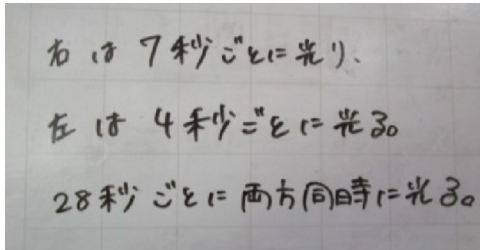 右は7秒ごとに光り、
左は4秒ごとに光る。
28秒ごとに両方同時に光る。